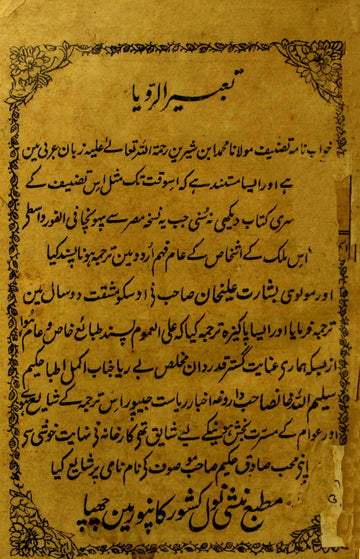 تعبیر الرّویا
خواب نامہ تصنیف مولانا محمد ابن شیرین رحمۃ اللہ تعالےٰ علیہ زبان عربی مین
ہے اور ایسا مستند ہے کہ اسوقت تک مثل اس تصنیف کے
سری کتاب دیکھی نہ سُنی جب یہ نسخہ مصر سے پہونچا فی الفور واسطے
اس ملک کے اشخاص کے عام فہم اُردو مین ترجمہ ہونا پسند کیا
اور مولوی بشارت علیخان صاحب نی اوسکو بمشقت دو سال مین
ترجمہ فرمایا اور ایسا پاکیزہ ترجمہ کیا کہ علی العموم پسند طبائع خاص و عام ہوا
ازبسکہ ہماری عنایت گستر قدردان مخلص بے ریا جناب اکمل اطبا حکیم
سلیم اللہ خانصاحب داروغہ اخبار ریاست جیپور اس ترجمہ کے شایع ہونے
اور عوام کے مسرت بخش ہونیکے لیے شایق تھی کارخانہ نی نہایت خوشی سی
اپنی محب صادق حکیم صاحب موصوف کی نام نامی پر شایع کیا
مطبع منشی نولکشور کانپور مین چھپا